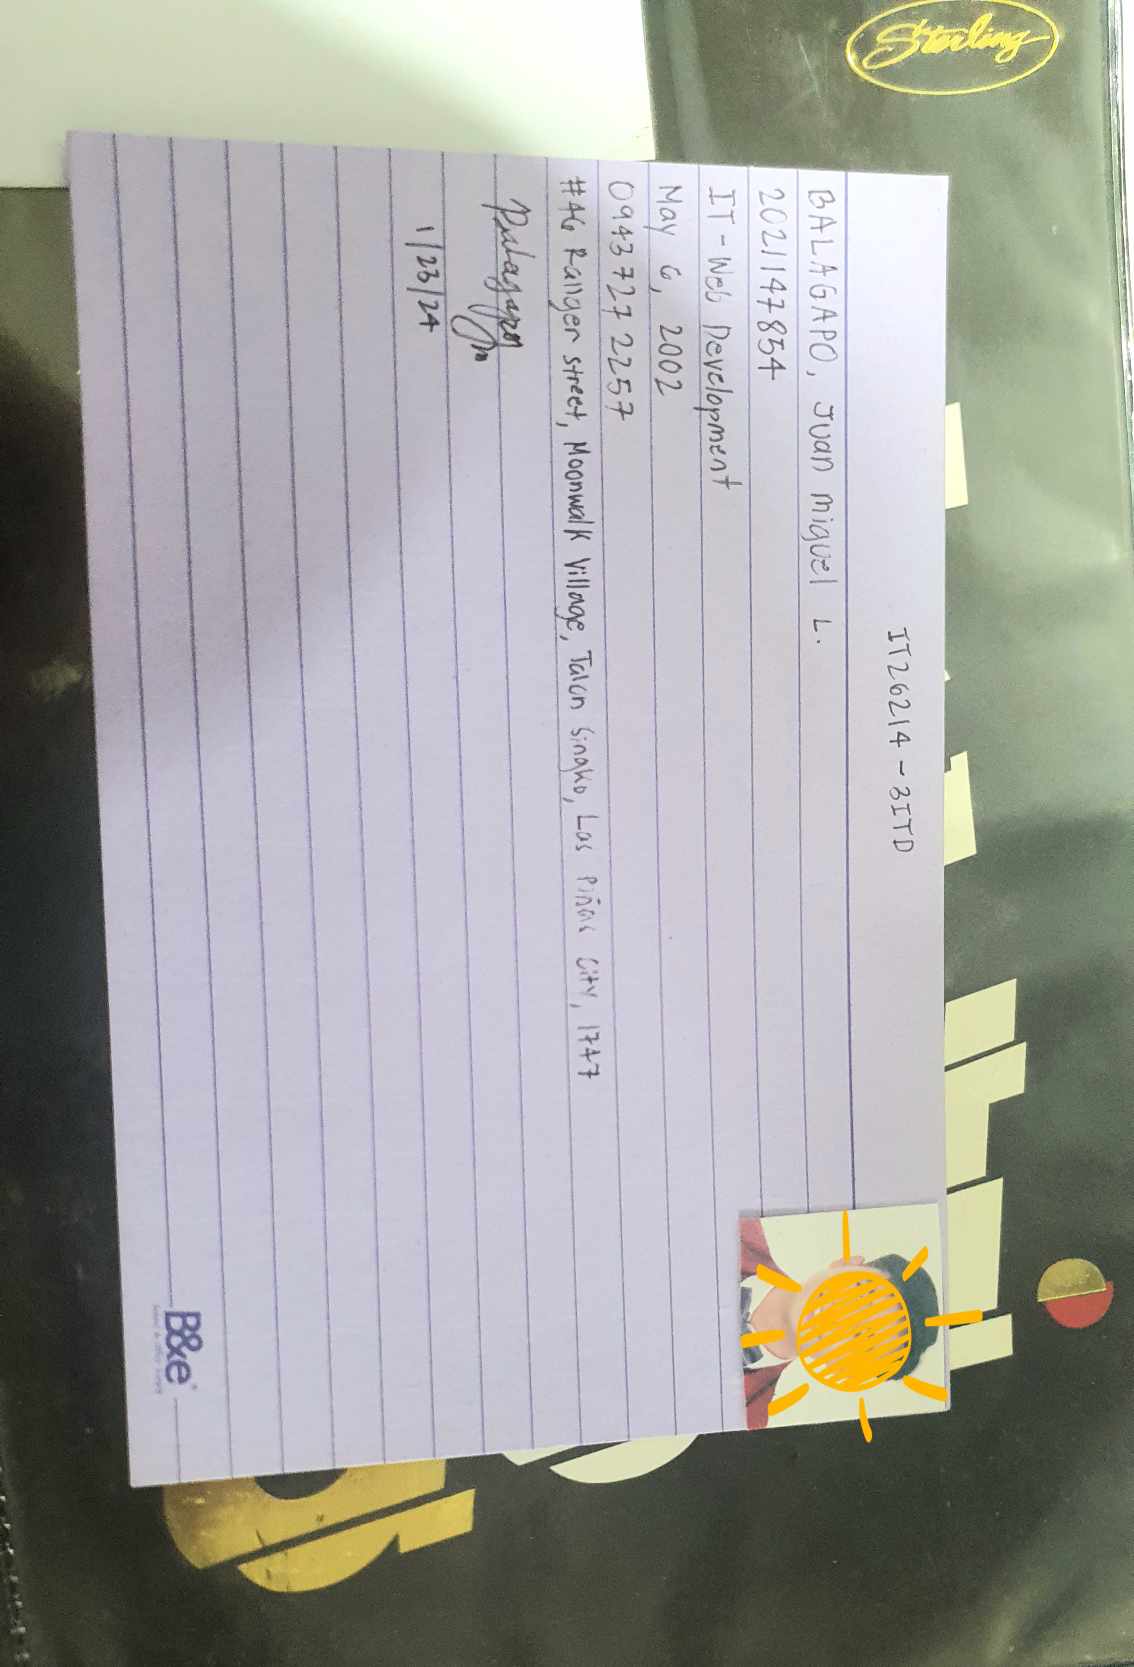 Sterling
IT26214 - 3ITD
BALAGAPO, Juan miguel L.
2021147854
IT - Web Development
May 6, 2002
0943 727 2257
#46 Ranger street, Moonwalk Village, Talon Singko, Las Piñas City, 1747
Balagapo
1/23/24
B&e